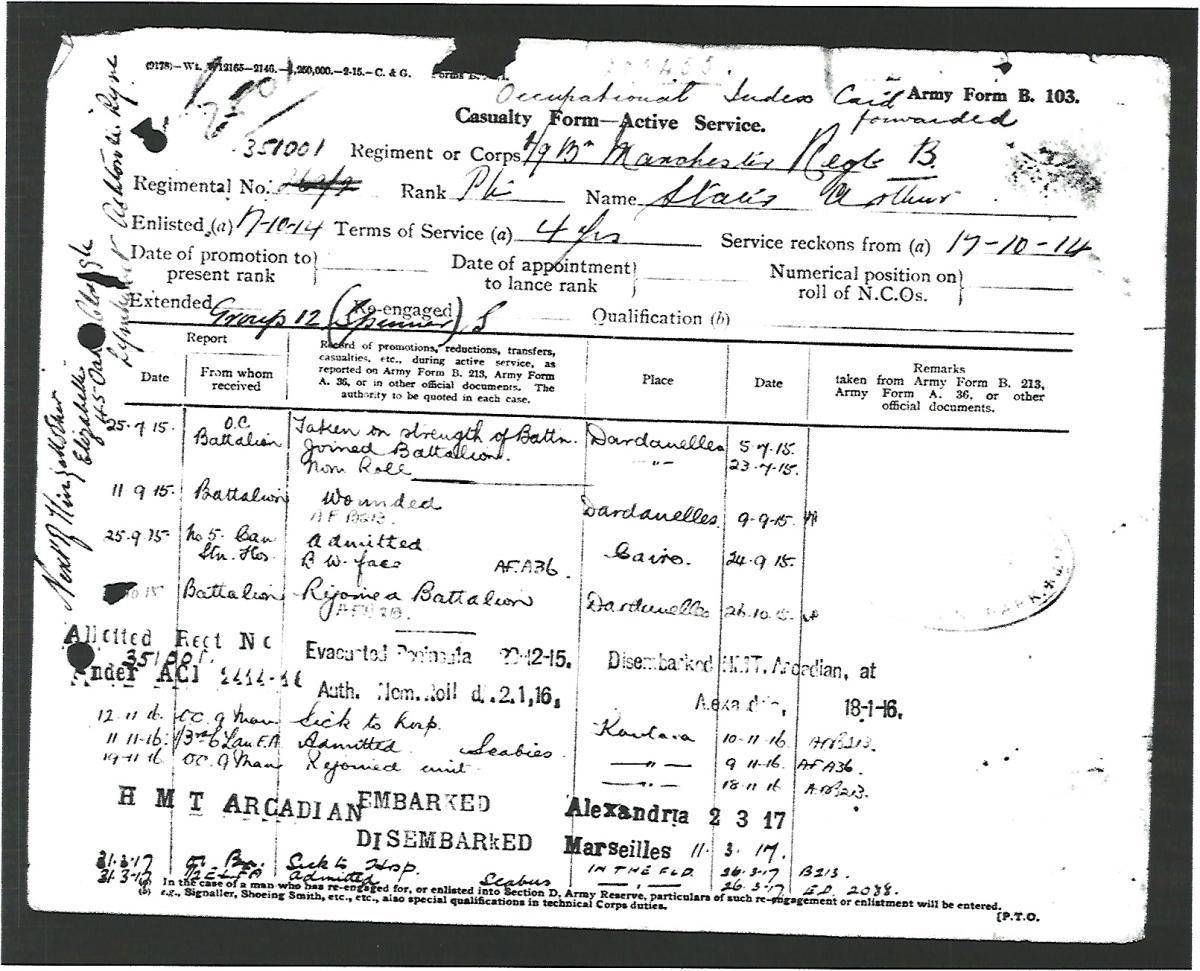 (9178)—Wt. W12165—2146.—1,250,000.—2-15.—C. & G. Forms B.
Occupational Index Card forwarded
Army Form B. 103.
Casualty Form—Active Service.
351001 Regiment or Corps 1/9 Bn Manchester Regt B.
Regimental No. Rank Pte Name Arthur
Enlisted (a) 17-10-14 Terms of Service (a) 4 yrs Service reckons from (a) 17-10-14
Date of promotion to present rank Date of appointment to lance rank Numerical position on roll of N.C.Os.
Extended Re-engaged Qualification (b)
Group 12 (Spinner) S
Next of Kin, Mother
Elizabeth
45 Oak
Ashton u Lyne
Report
Date
From whom received
Record of promotions, reductions, transfers, casualties, etc., during active service, as reported on Army Form B. 213, Army Form A. 36, or in other official documents. The authority to be quoted in each case.
Place
Date
Remarks taken from Army Form B. 213, Army Form A. 36, or other official documents.
25.7.15. O.C. Battalion Taken on strength of Battn. Dardanelles 5.7.15.
Joined Battalion. —"— 23.7.15.
Nom Roll
11 9 15. Battalion Wounded Dardanelles 9-9-15.
AF B213.
25.9.15 No 5. Can Stn. Hos. Admitted Cairo. 24.9 15.
B W. face AF.A36.
15 Battalion Rejoined Battalion Dardanelles 26.10.15
Allotted Regt No 351001.
Under ACI 2414-16
Evacuated Peninsula 29-12-15. Disembarked HMT. Arcadian, at
Auth. Nom. Roll d. 2.1.16. Alexandria, 18-1-16.
12.11 16. OC. 9 Man Sick to Hosp. Kantara 10-11-16 AFB213.
11 11-16. 1/3rd E Lan F.A Admitted Scabies —"— 9 11-16. AF A36.
19-11 16 OC. 9 Man Rejoined unit —"— 18 11 16 AFB213.
H M T ARCADIAN EMBARKED Alexandria 2 3 17
DISEMBARKED Marseilles 11. 3. 17.
31.3.17 Sick to Hosp. IN THE FLD. 26.3.17 B213.
31.3.17 Admitted Scabies —"— 26.3.17 E.D. 2088.
(a) In the case of a man who has re-engaged for, or enlisted into Section D, Army Reserve, particulars of such re-engagement or enlistment will be entered.
(b) e.g., Signaller, Shoeing Smith, etc., etc., also special qualifications in technical Corps duties.
[P.T.O.